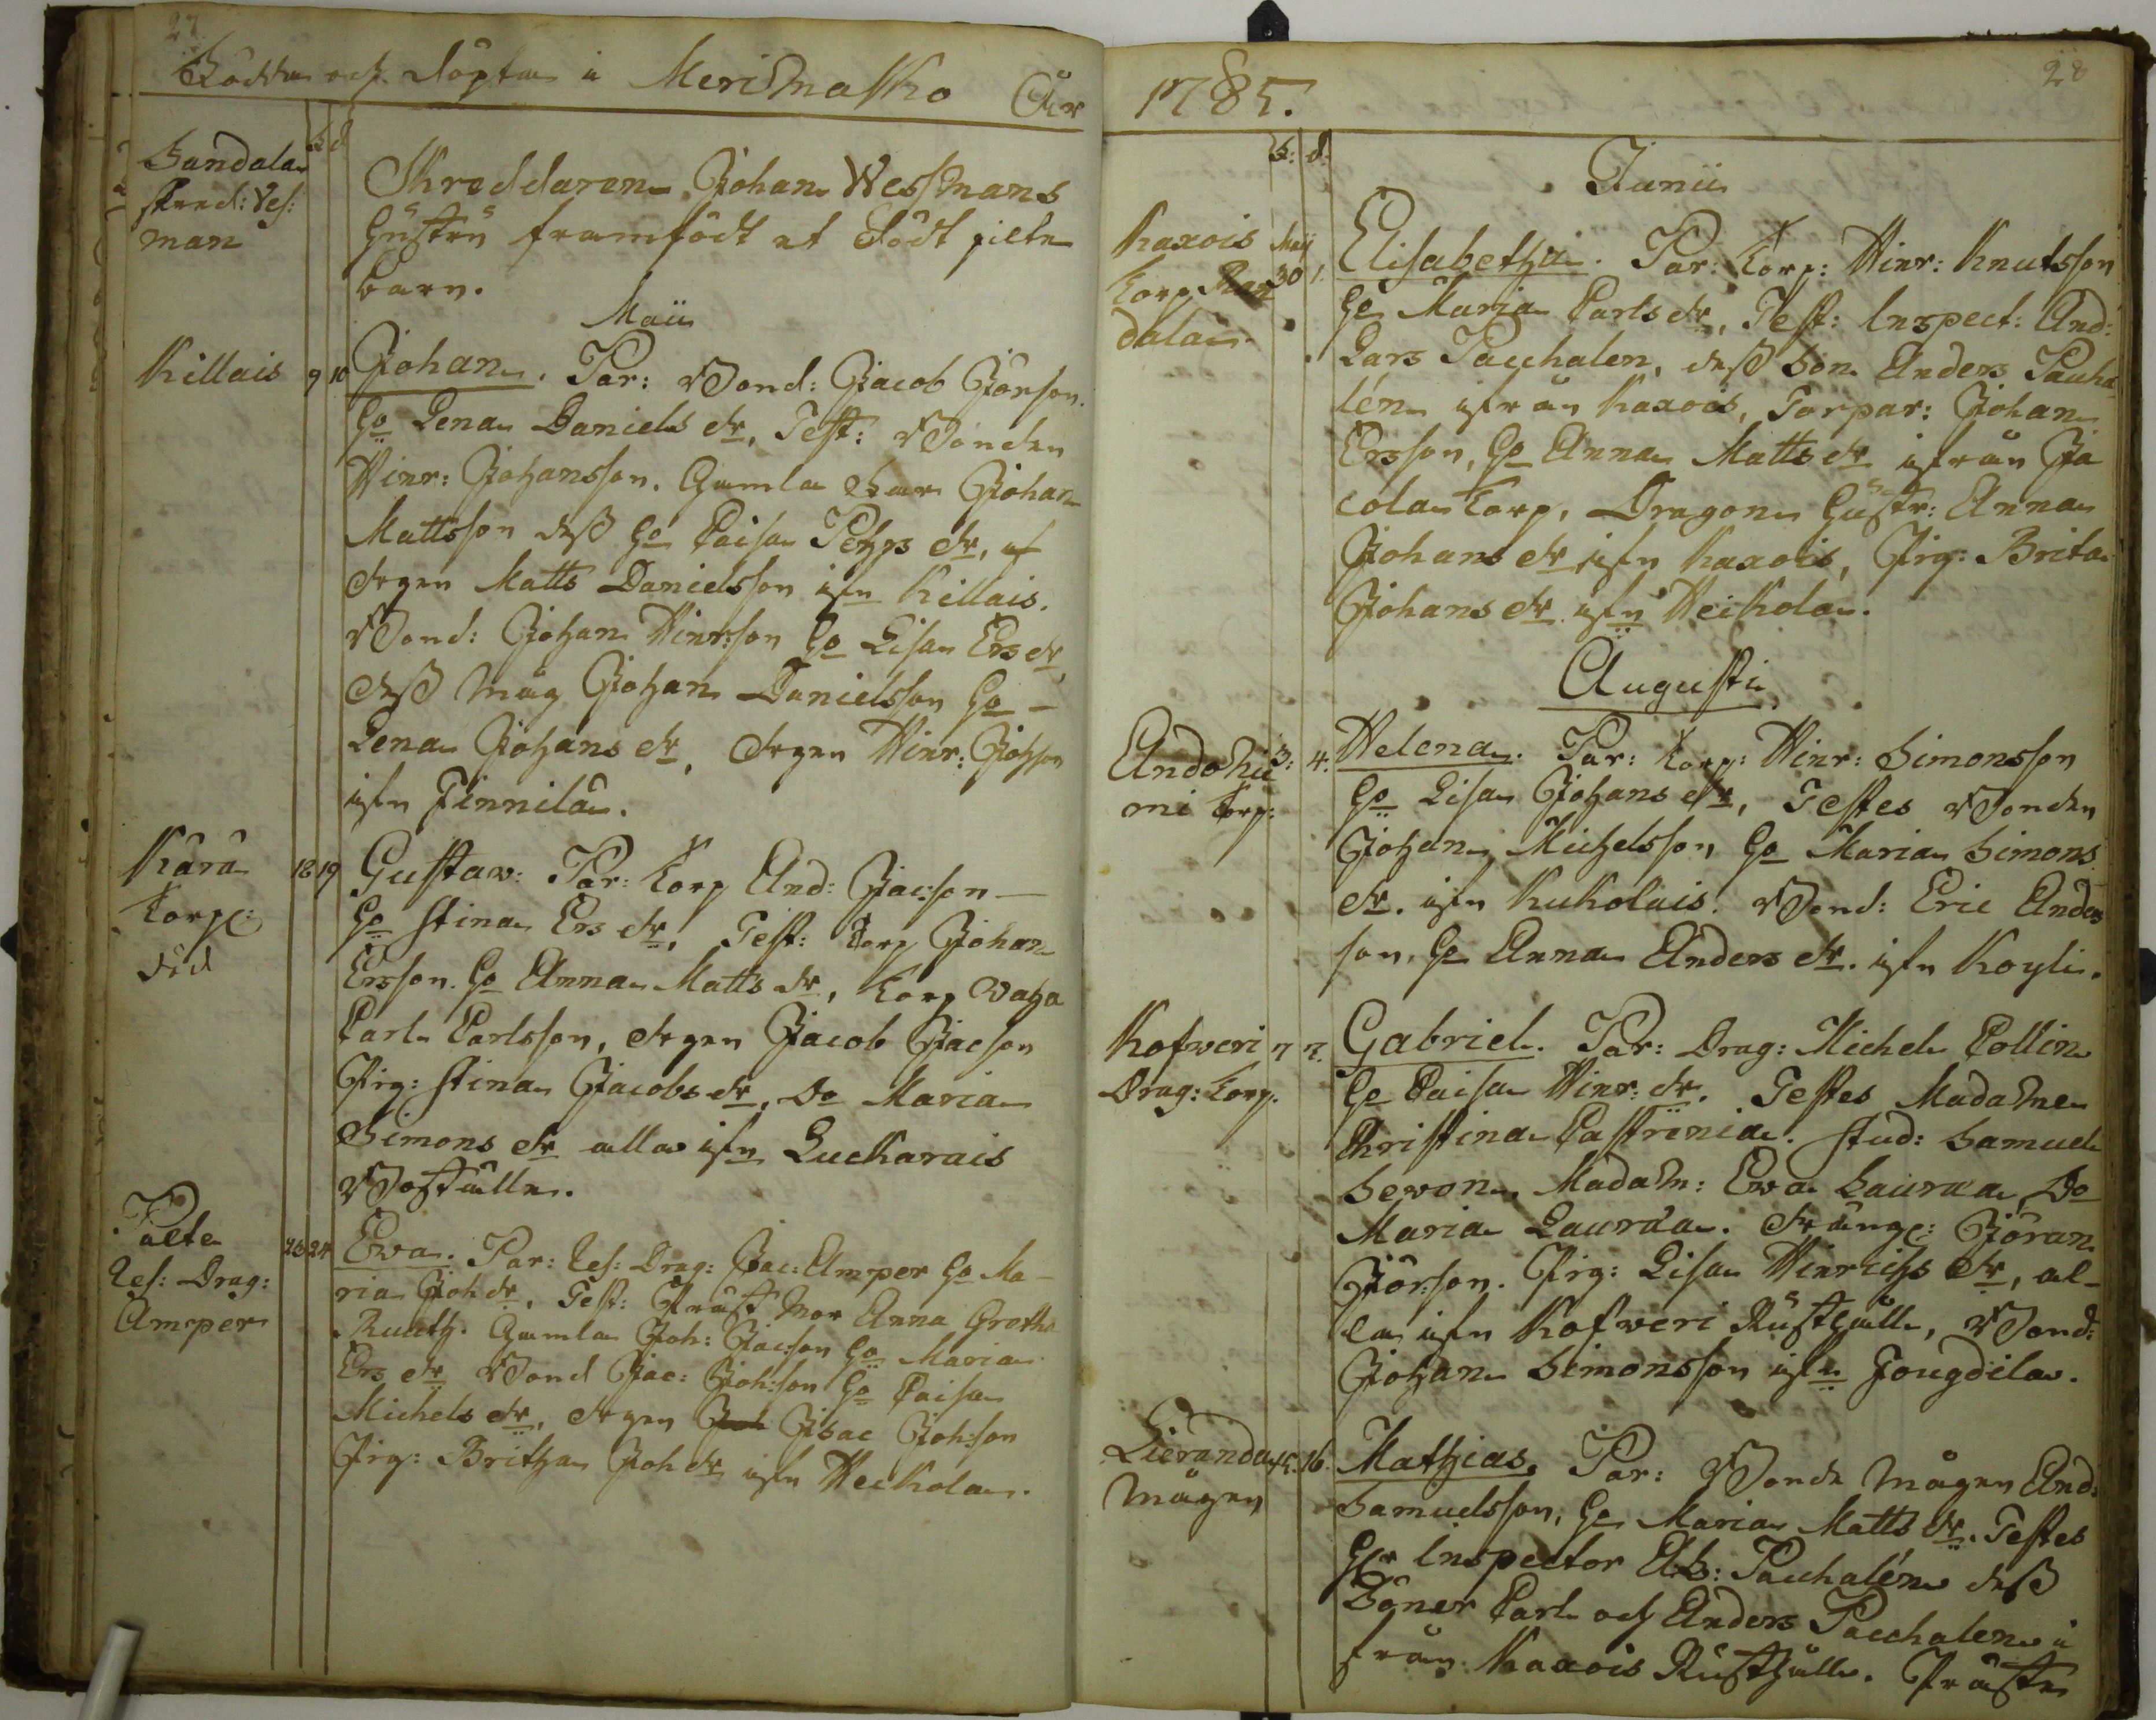 27.
Födde och döpte i Merimasko År
Sandala
skred: Ves:
man
Skreddaren Johan Wessmans
hustru framfödt et dödt pilte
barn.
Maii
Killais 9 10 Johan. Par: Bond: Jacob Jörson.
Ho Lena Daniels dr, Test: Bonden
Hinr: Johansson. Gamla Far Johan
Mattsson dess Ho Caisa Pehrs dr,
drgen Matts Danielsson ifn Killais.
Bond: Johan Hinr:son Ho Lisa Ers dr,
dess måg Johan Danielsson Ho
Lena Johans dr, drgen Hinr: Johsson
ifn Finnila.
Kara
Torp:
18 19 Gustav: Par: Torp And: Jac:son
Ho Stina Ers dr, Test: Torp Johan
Ersson. Ho Anna Matts dr, Torp
Carl Carlsson, drgen Jacob Jacson
Pig: Stina Jacobs dr, Do Maria
Simons dr alla ifn Luckarais
Bost:
Palta
Res: Drag:
Amper
23 24 Ewa. Par: Res: Drag: Jac: Amper Ho Ma-
ria Joh dr, Test: Prust Mor Anna Gretha
Gamla Joh: Jac:son Ho Maria
Ers dr Bond Jac: Joh:son Ho Caisa
Michels dr, drgen Isac Joh:son
Pig: Britha Joh dr ifn Heikola.
28
1785.
F: d:
Junii
Kaxois
Torp Ran
dala
Maij
30 1. Elisabetha. Par: Torp: Hinr: Knutsson
Ho Maria Carls dr, Test: Inspect: And:
Lars Pacchalen, dess Son Anders Paccha
lén ifrån Kaxois, Torpar: Johan
Ersson, Ho Anna Matts dr ifrån Ja
cola Torp, Dragon Hustr: Anna
Johans dr ifn Kaxois, Pig: Brita
Johans dr ifn Heikola.
Augusti
Andosu
mi Torp:
3: 4. Helena. Par: Torp: Hinr: Simonsson
Ho Lisa Johans dr, Testes Bonden
Johan Michelsson, Ho Maria Simons
dr. ifn Kukolais. Bond: Eric Anders
son, Ho Anna Anders dr. ifn Koyli.
Kofweri
Drag: Torp.
7 7. Gabriel. Par: Drag: Michel Collin
Ho Caisa Hinr: dr. Testes Madamen
Christina Castrenia. Stud: Samuel
Sewon. Madam: Ewa Lauræa, Do
Maria Lauræa. drång: Jöran
Jörson. Pig: Lisa Hinrichs dr, al-
la ifn Kofweri Rusthåll, Bond:
Johan Simonsson ifn Fougdila.
Lieranda
Mågen
15. 16. Mathias. Par: Bonde Mågen And:
Samuelsson, Ho Maria Matts dr. Testes
Hr Inspector Pacchalén dess
Söner Carl och Anders Pacchalen i
från Kaxois Rusthåll. Prästen